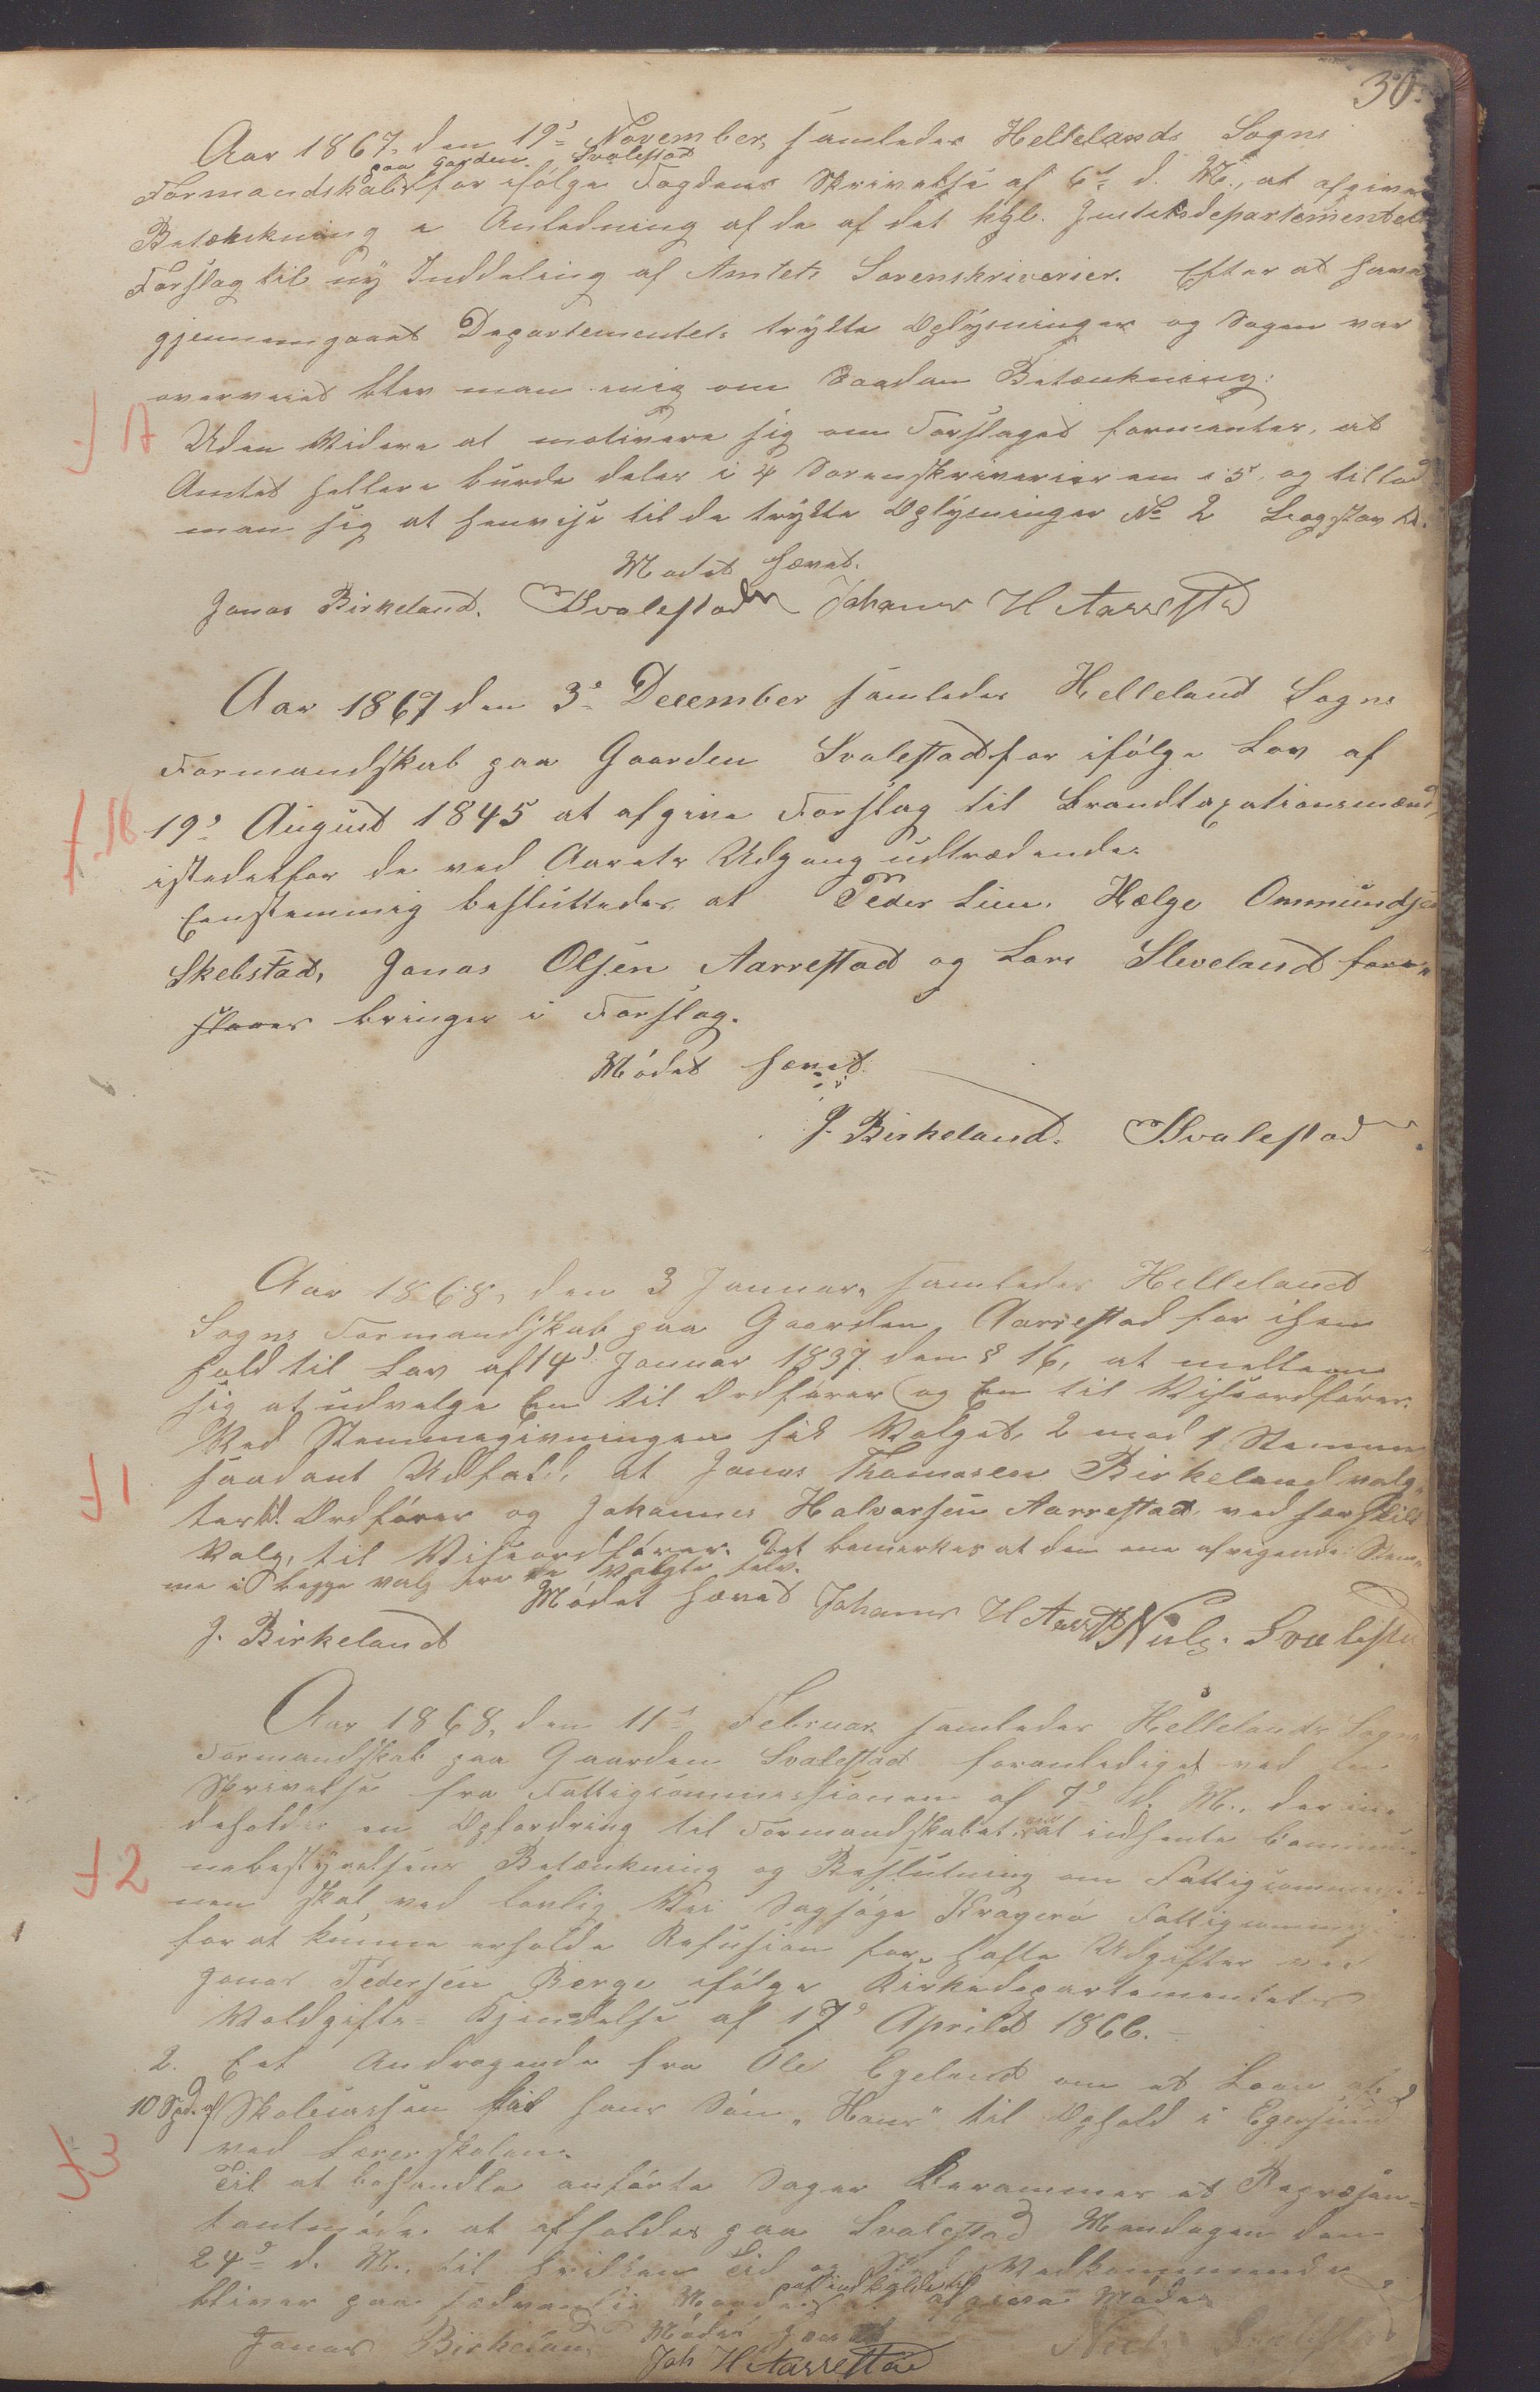 30.
Aar 1867, den 19d November, samledes Hellelands Sogns
paa Gaarden Svalestad
Formandskab for ifølge Fogdens Skrivelse af 6te d. M., at afgive
Betænkning i Anledning af de af det kgl. Justitsdepartementet
Forslag til ny Inddeling af Amtets Sorenskriverier. Efter at have
gjennemgaaet Departementets trykte Oplysninger og Sagen var
overveiet blev man enig om saadan Betænkning:
I 17
Uden Videre at motivere sig om Forslaget formentes, at
Amtet hellere burde deles i 4 Sorenskriverier en i 5, og tillod
man sig at henvise til de trykte Oplysninger No 2 Bogstav
Mødet hævet.
Jonas Birkeland. Svalestad Johanes H Aarrestad
Aar 1867 den 3d December samledes Helleland Sogns
Formandskab paa Gaarden Svalestad for ifølge Lov af
f. 18
19d August 1845 at afgive Forslag til Brandtaxationsmænd,
istedetfor de ved Aarets Udgang udtrædende.
Eenstemmig besluttedes at Peder Lien, Hælge Ommundsen
Skebstad, Jonas Olsen Aarrestad og Lars Sleveland fore-
slaaes bringes i Forslag.
Mødet hævet.
J. Birkeland. Svalestad
Aar 1868, den 3 Januar, samledes Helleland
Sogns Formandskab paa Gaarden Aarrestad for ihen
hold til Lov af 14d Januar 1837 den § 16, at mellem
sig at udvælge En til Ordfører og En til Viseordfører.
Ved Stemmegivningen fik Valget, 2 mod 1 Stemme
I 1
saadant Udfald, at Jonas Thomasen Birkeland valg-
tes til Ordfører og Johannes Halvorsen Aarrestad, ved særskilt
Valg, til Viseordfører. Det bemerkes at den ene afvegende Stem-
me i begge valg ere de valgte selv.
Mødet hævet Johanes H Aarrestad Nils. Svalestad
J. Birkeland
Aar 1868, den 11te Februar samledes Hellelands Sogns
Formandskab paa Gaarden Svalestad foranlediget ved en
Skrivelse fra Fattigcommissionen af 7d d. M., der in-
deholder en Opfordring til Formandskabet at indhente Commu-
I 2
nebestyrelsens Betænkning og Beslutning om Fattigcommissio-
nen skal ved lovlig Vei sagsøge Kragerø Fattigcommission
for at kunne erholde Refusion for hafte Udgifter ved
Jonas Pedersen Berge ifølge Kirkedepartementets
Voldgifts-Kjendelse af 17d April 1866.
2. Eet Andragende fra Ole Egeland om et Laan af
10 Spd. af Skolecassen til hans Søn "Hans" til Ophold i Egersund
ved Lærerskolen.
I 3
Til at behandle anførte Sager berammes et Repræsen-
tantmøde at afholdes paa Svalestad Mandagen den
24d d. M., til hvilken Tid og Sted Vedkommende
bliver paa sædvanlig Maade at indkalde til at give Møde
Mødet hævet
Jonas Birkeland Joh H Aarrestad Niels Svalestad